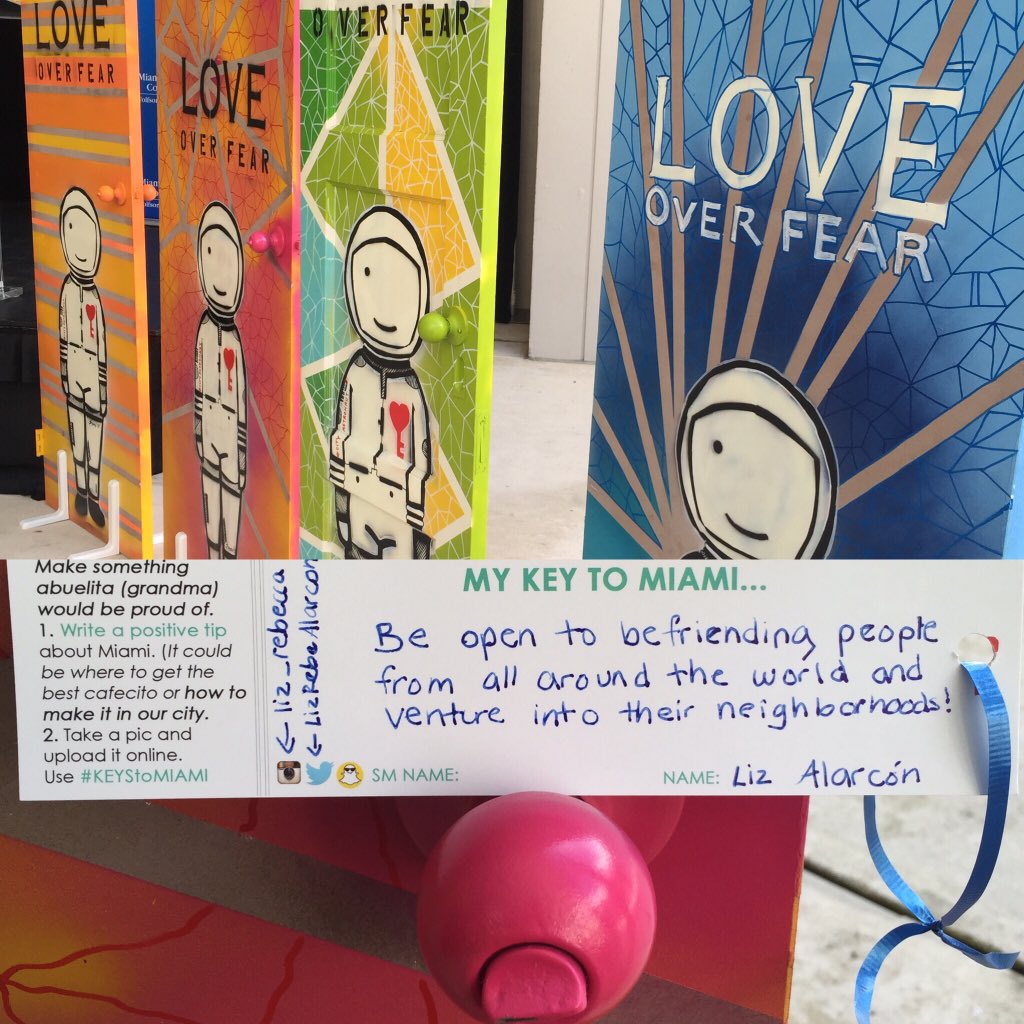 LOVE
OVER FEAR
LOVE
OVER FEAR
OVER FEAR
LOVE
OVER FEAR
Miami
Make something
abuelita (grandma)
would be proud of.
1. Write a positive tip
about Miami. (It could
be where to get the
best cafecito or how to
make it in our city.
2. Take a pic and
upload it online.
Use #KEYStoMIAMI
← liz_rebecca
← LizRebeAlarcon
MY KEY TO MIAMI...
Be open to befriending people
from all around the world and
venture into their neighborhoods!
SM NAME:
NAME: Liz Alarcón